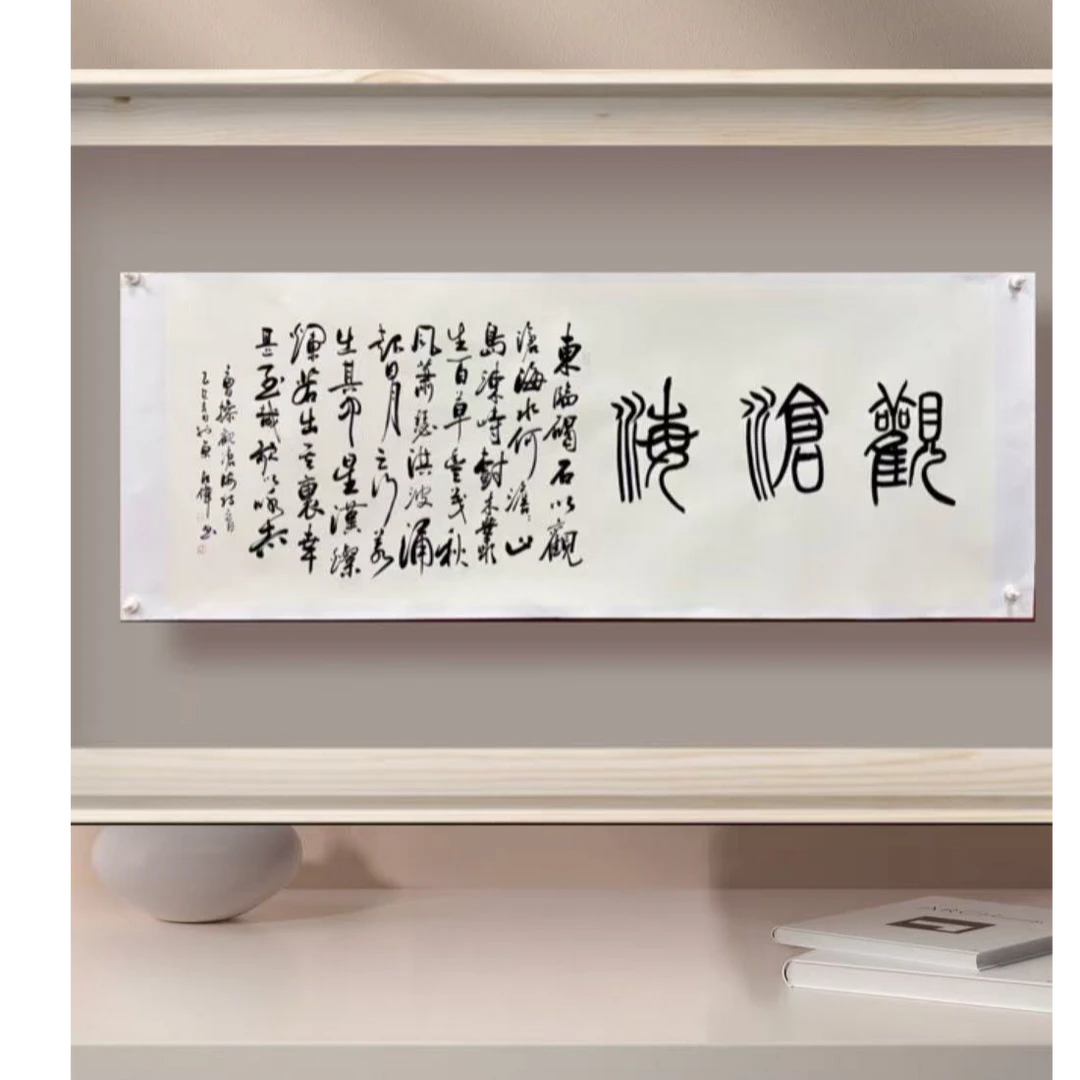 觀滄海
東臨碣石以觀
滄海水何澹山
島竦峙樹木叢
生百草豐茂秋
風蕭瑟洪波涌
起日月之行若
出其中星漢燦
爛若出其裏幸
甚至哉歌以詠志
曹操觀滄海詩一首
偉書